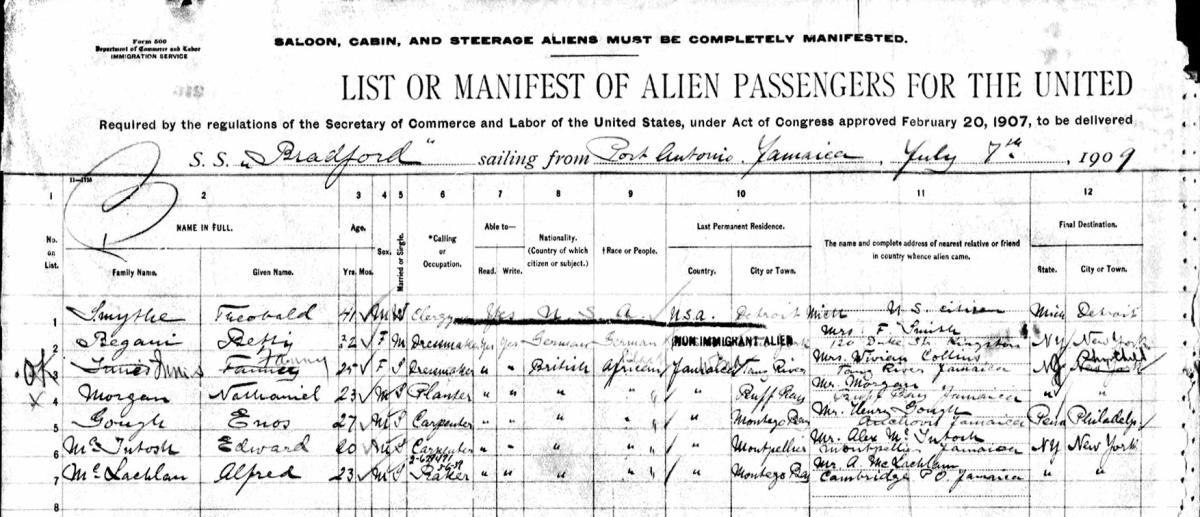 Form 500
Department of Commerce and Labor
IMMIGRATION SERVICE
SALOON, CABIN, AND STEERAGE ALIENS MUST BE COMPLETELY MANIFESTED.
LIST OR MANIFEST OF ALIEN PASSENGERS FOR THE UNITED
Required by the regulations of the Secretary of Commerce and Labor of the United States, under Act of Congress approved February 20, 1907, to be delivered
S. S. "Bradford" sailing from Port Antonio, Jamaica, July 7th, 1909
1 2 3 4 5 6 7 8 9 10 11 12
No. on List. NAME IN FULL. Age. Sex. Married or Single. *Calling or Occupation. Able to— Nationality. (Country of which citizen or subject.) †Race or People. Last Permanent Residence. The name and complete address of nearest relative or friend in country whence alien came. Final Destination.
Family Name. Given Name. Yrs. Mos. Read. Write. Country. City or Town. State. City or Town.
1 Smythe Theobald 41 M Clergy Yes U. S. A. U.S.a. Detroit Mich U S citizen Mich Detroit
2 Begani Betty 32 F M Dressmaker Yes Yes German German NON IMMIGRANT ALIEN Mrs. F. Smith 120 Duke St. Kingston NY New York
3 Innis Fanny 25 F S Dressmaker " " British African Jamaica Tangs River Mrs. Vivian Collins Tangs River Jamaica NY New York
4 Morgan Nathaniel 23 M S Planter " " " " " Buff Bay Mr. Morgan Buff Bay Jamaica " "
5 Gough Enos 27 M S Carpenter " " " " " Montego Bay Mr. Henry Gough Anchovy Jamaica Penn Philadelp
6 Mc Intosh Edward 20 M S Carpenter " " " " " Montpellier Mr. Alex Mc Intosh Montpellier Jamaica NY New York
7 Mc Lachlan Alfred 23 M S Baker " " " " " Montego Bay Mr. A. McLachlan Cambridge P.O. Jamaica " "
8